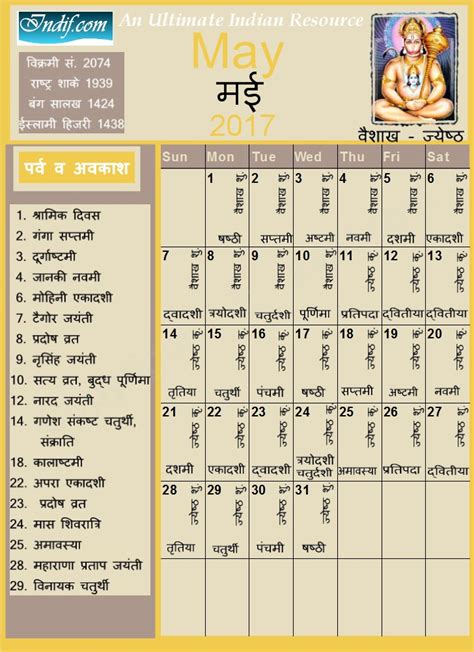 Indif.com
An Ultimate Indian Resource
विक्रमी सं. 2074
राष्ट्र शाके 1939
बंग सालख 1424
ईस्लामी हिजरी 1438
May
मई
2017
वैशाख - ज्येष्ठ
पर्व व अवकाश
1. श्रामिक दिवस
2. गंगा सप्तमी
3. दूर्गाष्टमी
4. जानकी नवमी
6. मोहिनी एकादशी
7. टैगोर जयंती
8. प्रदोष व्रत
9. नृसिंह जयंती
10. सत्य व्रत, बुद्ध पूर्णिमा
12. नारद जयंती
14. गणेश संकष्ट चतुर्थी,
संक्राति
18. कालाष्टमी
22. अपरा एकादशी
23. प्रदोष व्रत
24. मास शिवरात्रि
25. अमावस्या
28. महाराणा प्रताप जयंती
29. विनायक चतुर्थी
Sun Mon Tue Wed Thu Fri Sat
1 वैशाख शु. 2 वैशाख शु. 3 वैशाख शु. 4 वैशाख शु. 5 वैशाख शु. 6 वैशाख शु.
षष्ठी सप्तमी अष्टमी नवमी दशमी एकादशी
7 वैशाख शु. 8 वैशाख शु. 9 वैशाख शु. 10 वैशाख शु. 11 ज्येष्ठ कृ. 12 ज्येष्ठ कृ. 13 ज्येष्ठ कृ.
द्वादशी त्रयोदशी चतुर्दशी पूर्णिमा प्रतिपदा द्वितीया द्वितीया
14 ज्येष्ठ कृ. 15 ज्येष्ठ कृ. 16 ज्येष्ठ कृ. 17 ज्येष्ठ कृ. 18 ज्येष्ठ कृ. 19 ज्येष्ठ कृ. 20 ज्येष्ठ कृ.
तृतिया चतुर्थी पंचमी षष्ठी सप्तमी अष्टमी नवमी
21 ज्येष्ठ कृ. 22 ज्येष्ठ कृ. 23 ज्येष्ठ कृ. 24 ज्येष्ठ कृ. 25 ज्येष्ठ कृ. 26 ज्येष्ठ 27 ज्येष्ठ
दशमी एकादशी द्वादशी त्रयोदशी चतुर्दशी अमावस्या प्रतिपदा द्वितीया
28 ज्येष्ठ शु. 29 ज्येष्ठ शु. 30 ज्येष्ठ शु. 31 ज्येष्ठ शु.
तृतिया चतुर्थी पंचमी षष्ठी